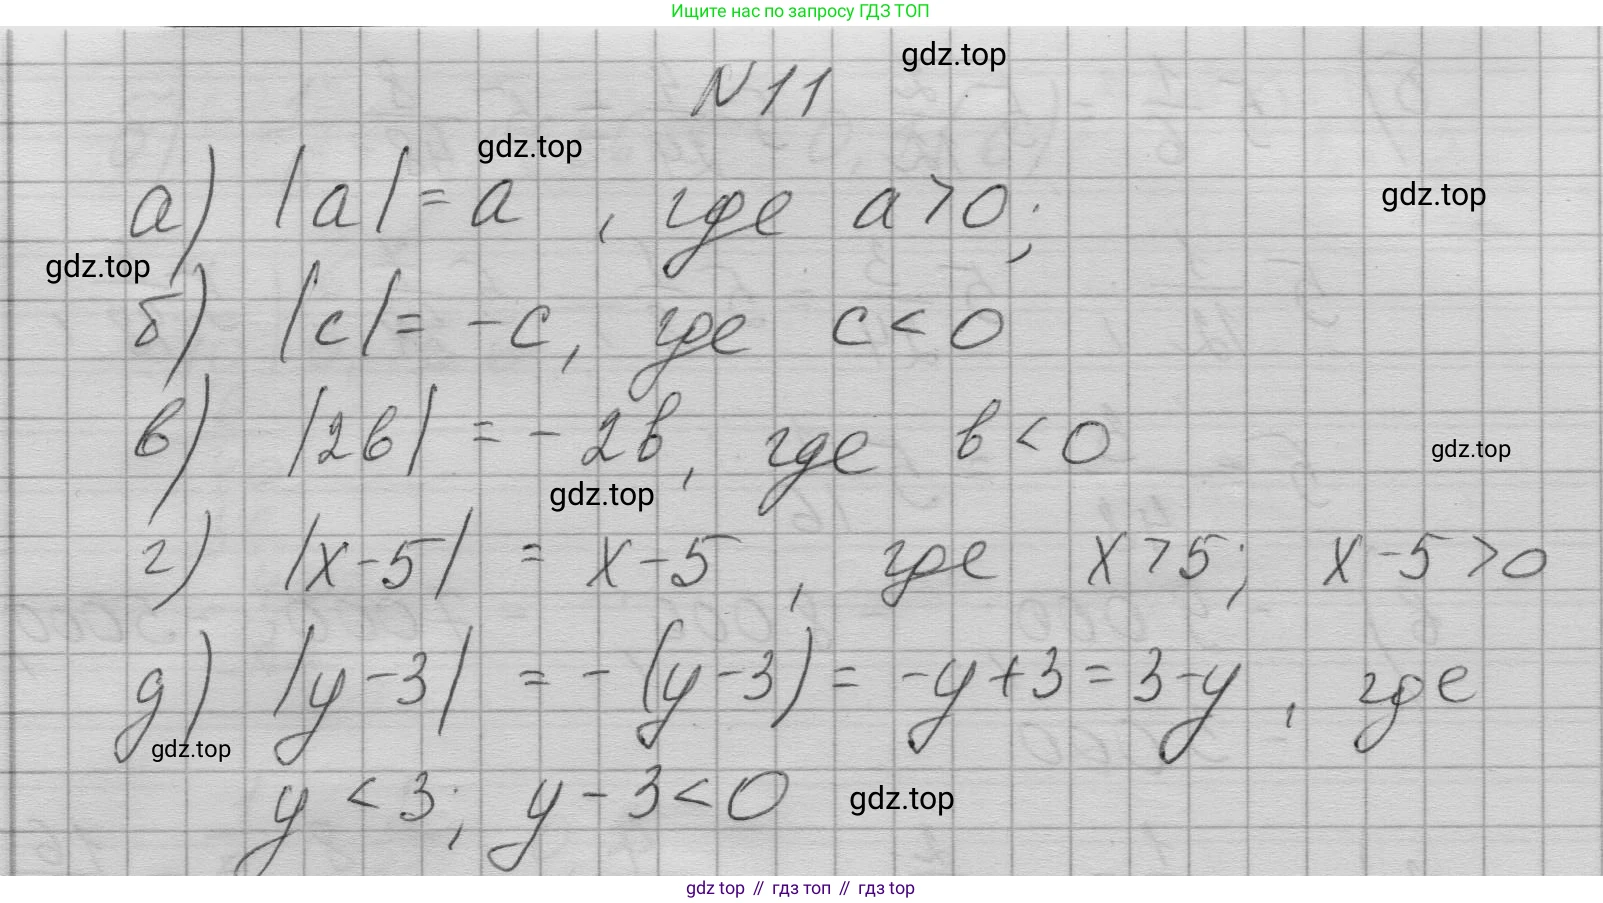 Ищите нас по запросу ГДЗ ТОП
gdz.top
N 11
gdz.top
а) |a| = a , где a > 0;
gdz.top
gdz.top
б) |c| = -c, где c < 0
в) |2b| = -2b, где b < 0
gdz.top
gdz.top
г) |x-5| = x-5 , где x > 5; x-5 > 0
д) |y-3| = -(y-3) = -y+3 = 3-y , где
gdz.top
y < 3; y-3 < 0
gdz.top
gdz top // гдз топ // gdz top